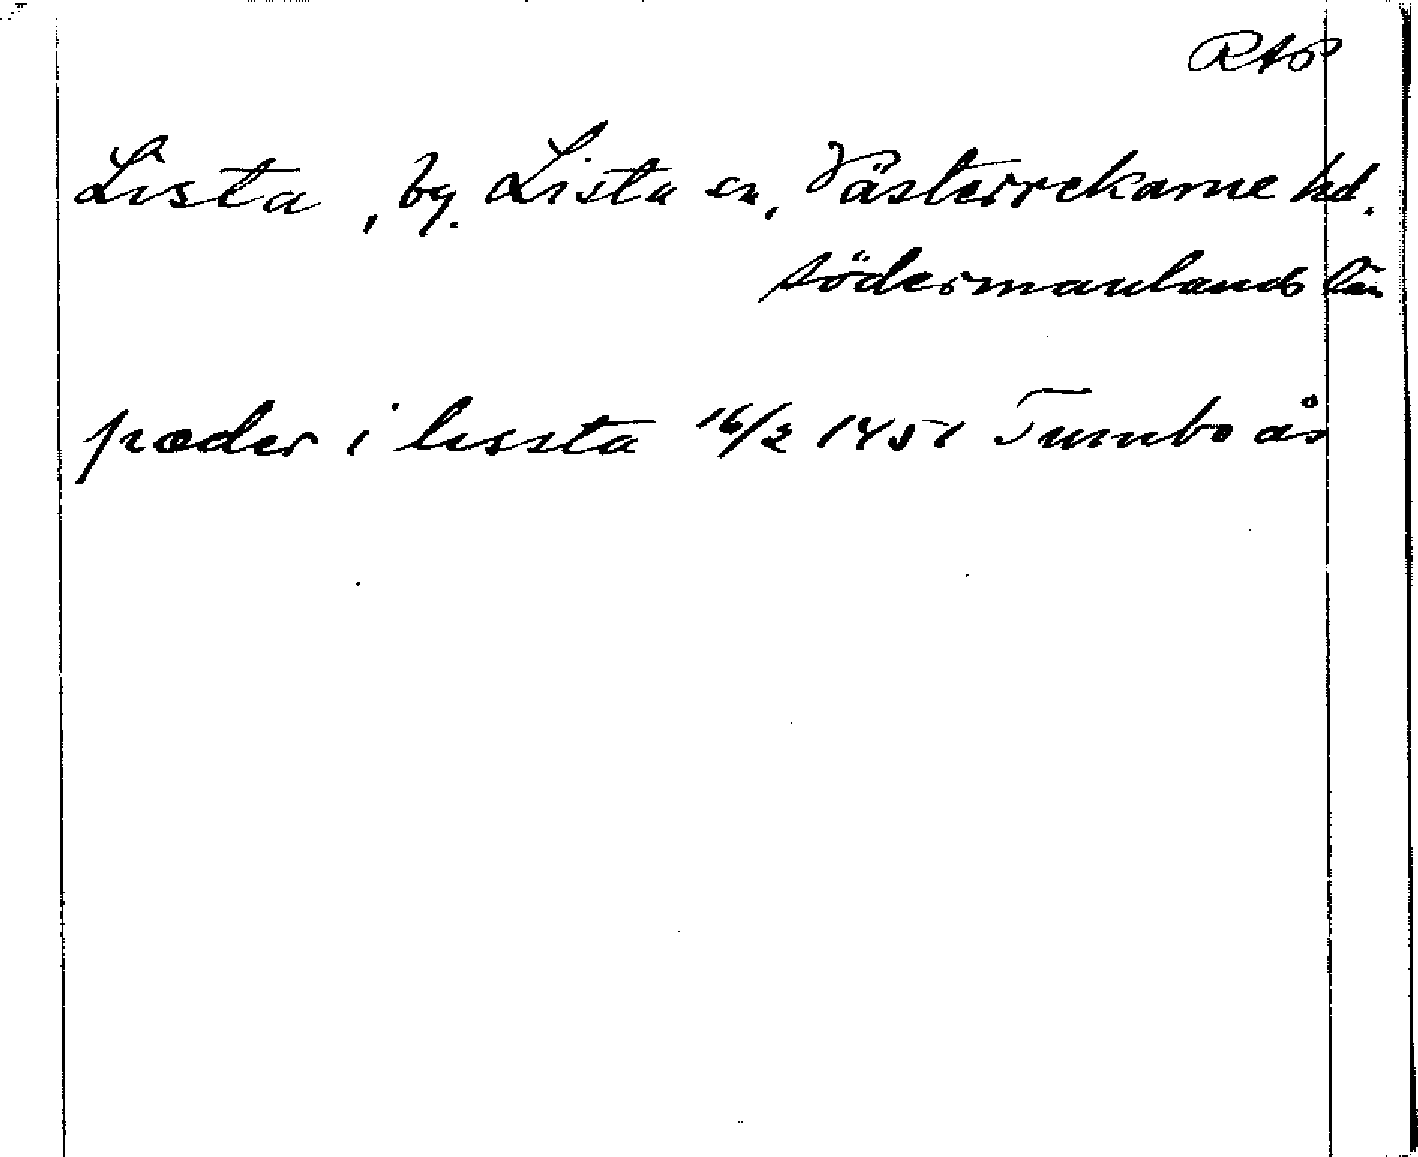 RAP
Lista, by. Lista sn, Västerrekarne hd.
Södermanlands län
pæder i lissta 16/2 1451 Tumbo ås